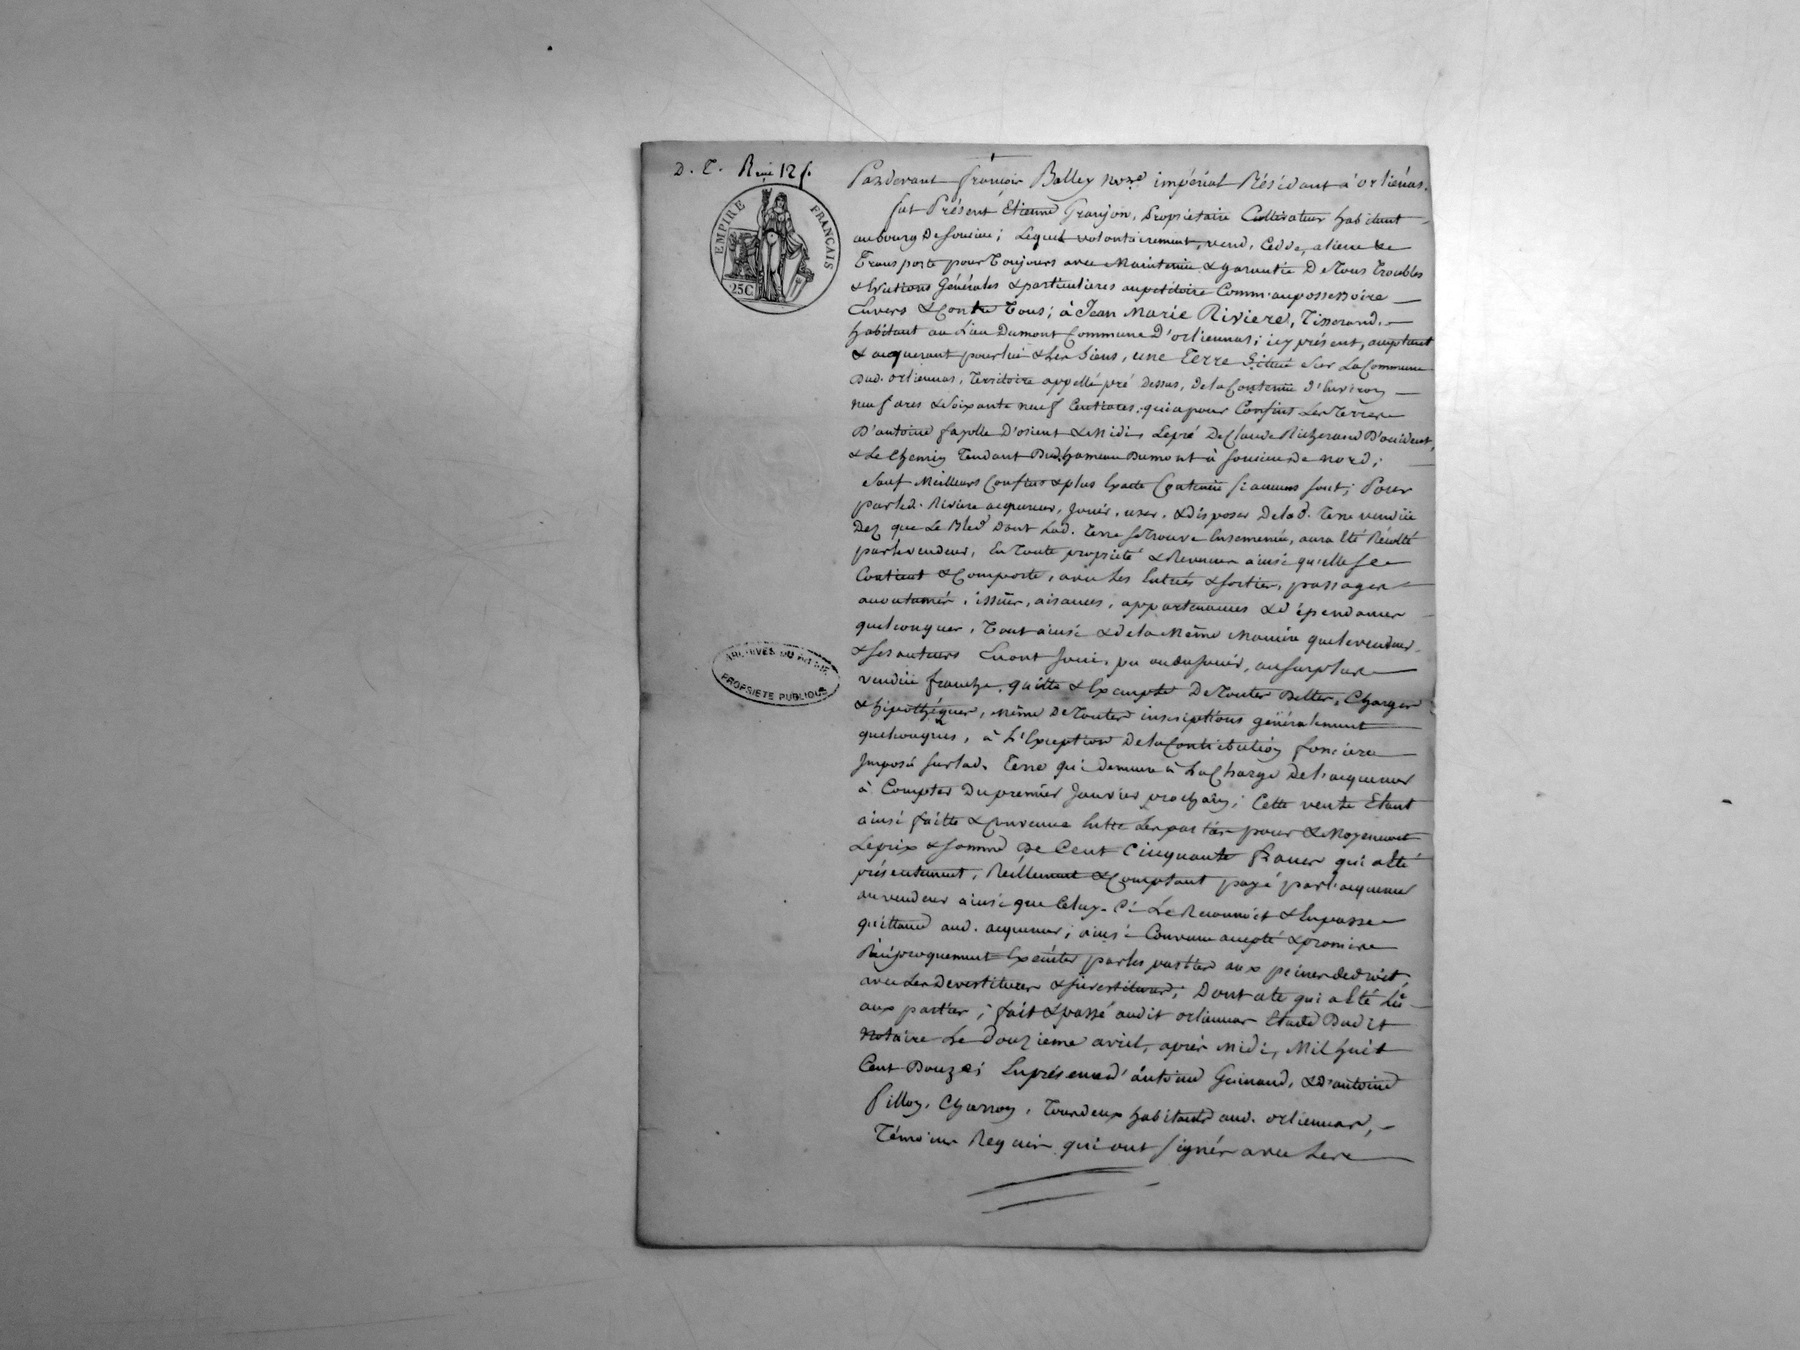 D. T. René 12 f.
EMPIRE FRANCAIS
25C
Pardevant françois Balley no.re impérial Résidant à orliénas.
fut Présent Etienne Granjon, Propriétaire Cultivateur habitant
au bourg De Soucieu; Lequel volontairement, vend, Cedde, aliene &
Transporte pour Toujours avec Maintenue & garantie De Tous Troubles
& Evictions Générales & particulieres au petitoire Comm' au possessoire
Envers & Contre Tous; à Jean Marie Riviere, Tisserand,
habitant au Lieu Dumont Commune D'orliennas; icy présent, acceptant
& acquerant pour lui & Les Siens, une Terre Située Sur La Commune
Dud. orliennas, Territoire appellé pré Dessus, De la Contenue d'Environ
neuf ares & Soixante neuf Centiares, qui a pour Confins Les Terres
D'antoine fayolle D'orient & Midi, Le pré De Claude Richerand D'occident,
& Le Chemin Tendant Dud. hameau Dumont à Soucieu De nord;
Sauf Meilleurs Confins & plus Exacte Contenue Si aucuns Sont; Pour
par led. Riviere acquereur, Jouir, user, & disposer De lad. Terre vendüe
Dez que Le Bled Dont Lad. Terre Se Trouve Ensemencée, aura Eté Récolté
par le vendeur, En Toute propriété & Revenus ainsi qu'elle Se
Contient & Comporte, avec Ses Entrées & Sorties, passages
accoutumés, issües, aisances, appartenances & dépendances
quelconques, Tout ainsi & de la Même Maniere que le vendeur
& Ses auteurs En ont Joui, pu ou du Jouir, au Surplus
vendüe franche, quitte & Exempte De Toutes Dettes, Charges
& hipothéques, Même De Toutes inscriptions généralement
quelconques, à L'Exception De la Contribution fonciere
Imposée Sur lad. Terre qui Demeure à La Charge De l'acquereur
à Compter Du premier Janvier prochain; Cette vente Etant
ainsi faitte & Convenue Entre Les parties pour & Moyennant
Le prix & Somme De Cent Cinquante francs qui a Eté
présentement, Réellement & Comptant payé par l'acquereur
au vendeur ainsi que Celuy-Ci Le Reconnoit & En passe
quittance aud. acquereur; ainsi Convenu accepté & promis
Réciproquement Exécuter par les parties aux peines de droit,
avec Les Devestitures & investitures; Dont acte qui a Eté Lû
aux parties; fait & passé audit orliennas Etude Dudit
Notaire Le Douzieme avril, après Midi, Mil huit
Cent Douze; En présence d'antoine Guinand, & D'antoine
Pillon, Charron, Tous deux habitants aud. orliennas,
Témoins Requis qui ont Signés avec Les
ARCHIVES DU RHONE
PROPRIETE PUBLIQUE